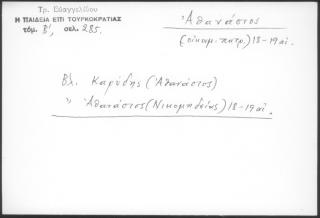 Τρ. Εὐαγγελίδου
Η ΠΑΙΔΕΙΑ ΕΠΙ ΤΟΥΡΚΟΚΡΑΤΙΑΣ
τόμ. Β', σελ. 285.
Ἀθανάσιος
(οἰκουμ. πατρ.) 18-19 αἰ.
Βλ. Καρύδης (Ἀθανάσιος)
" Ἀθανάσιος (Νικομηδείας) 18-19 αἰ.